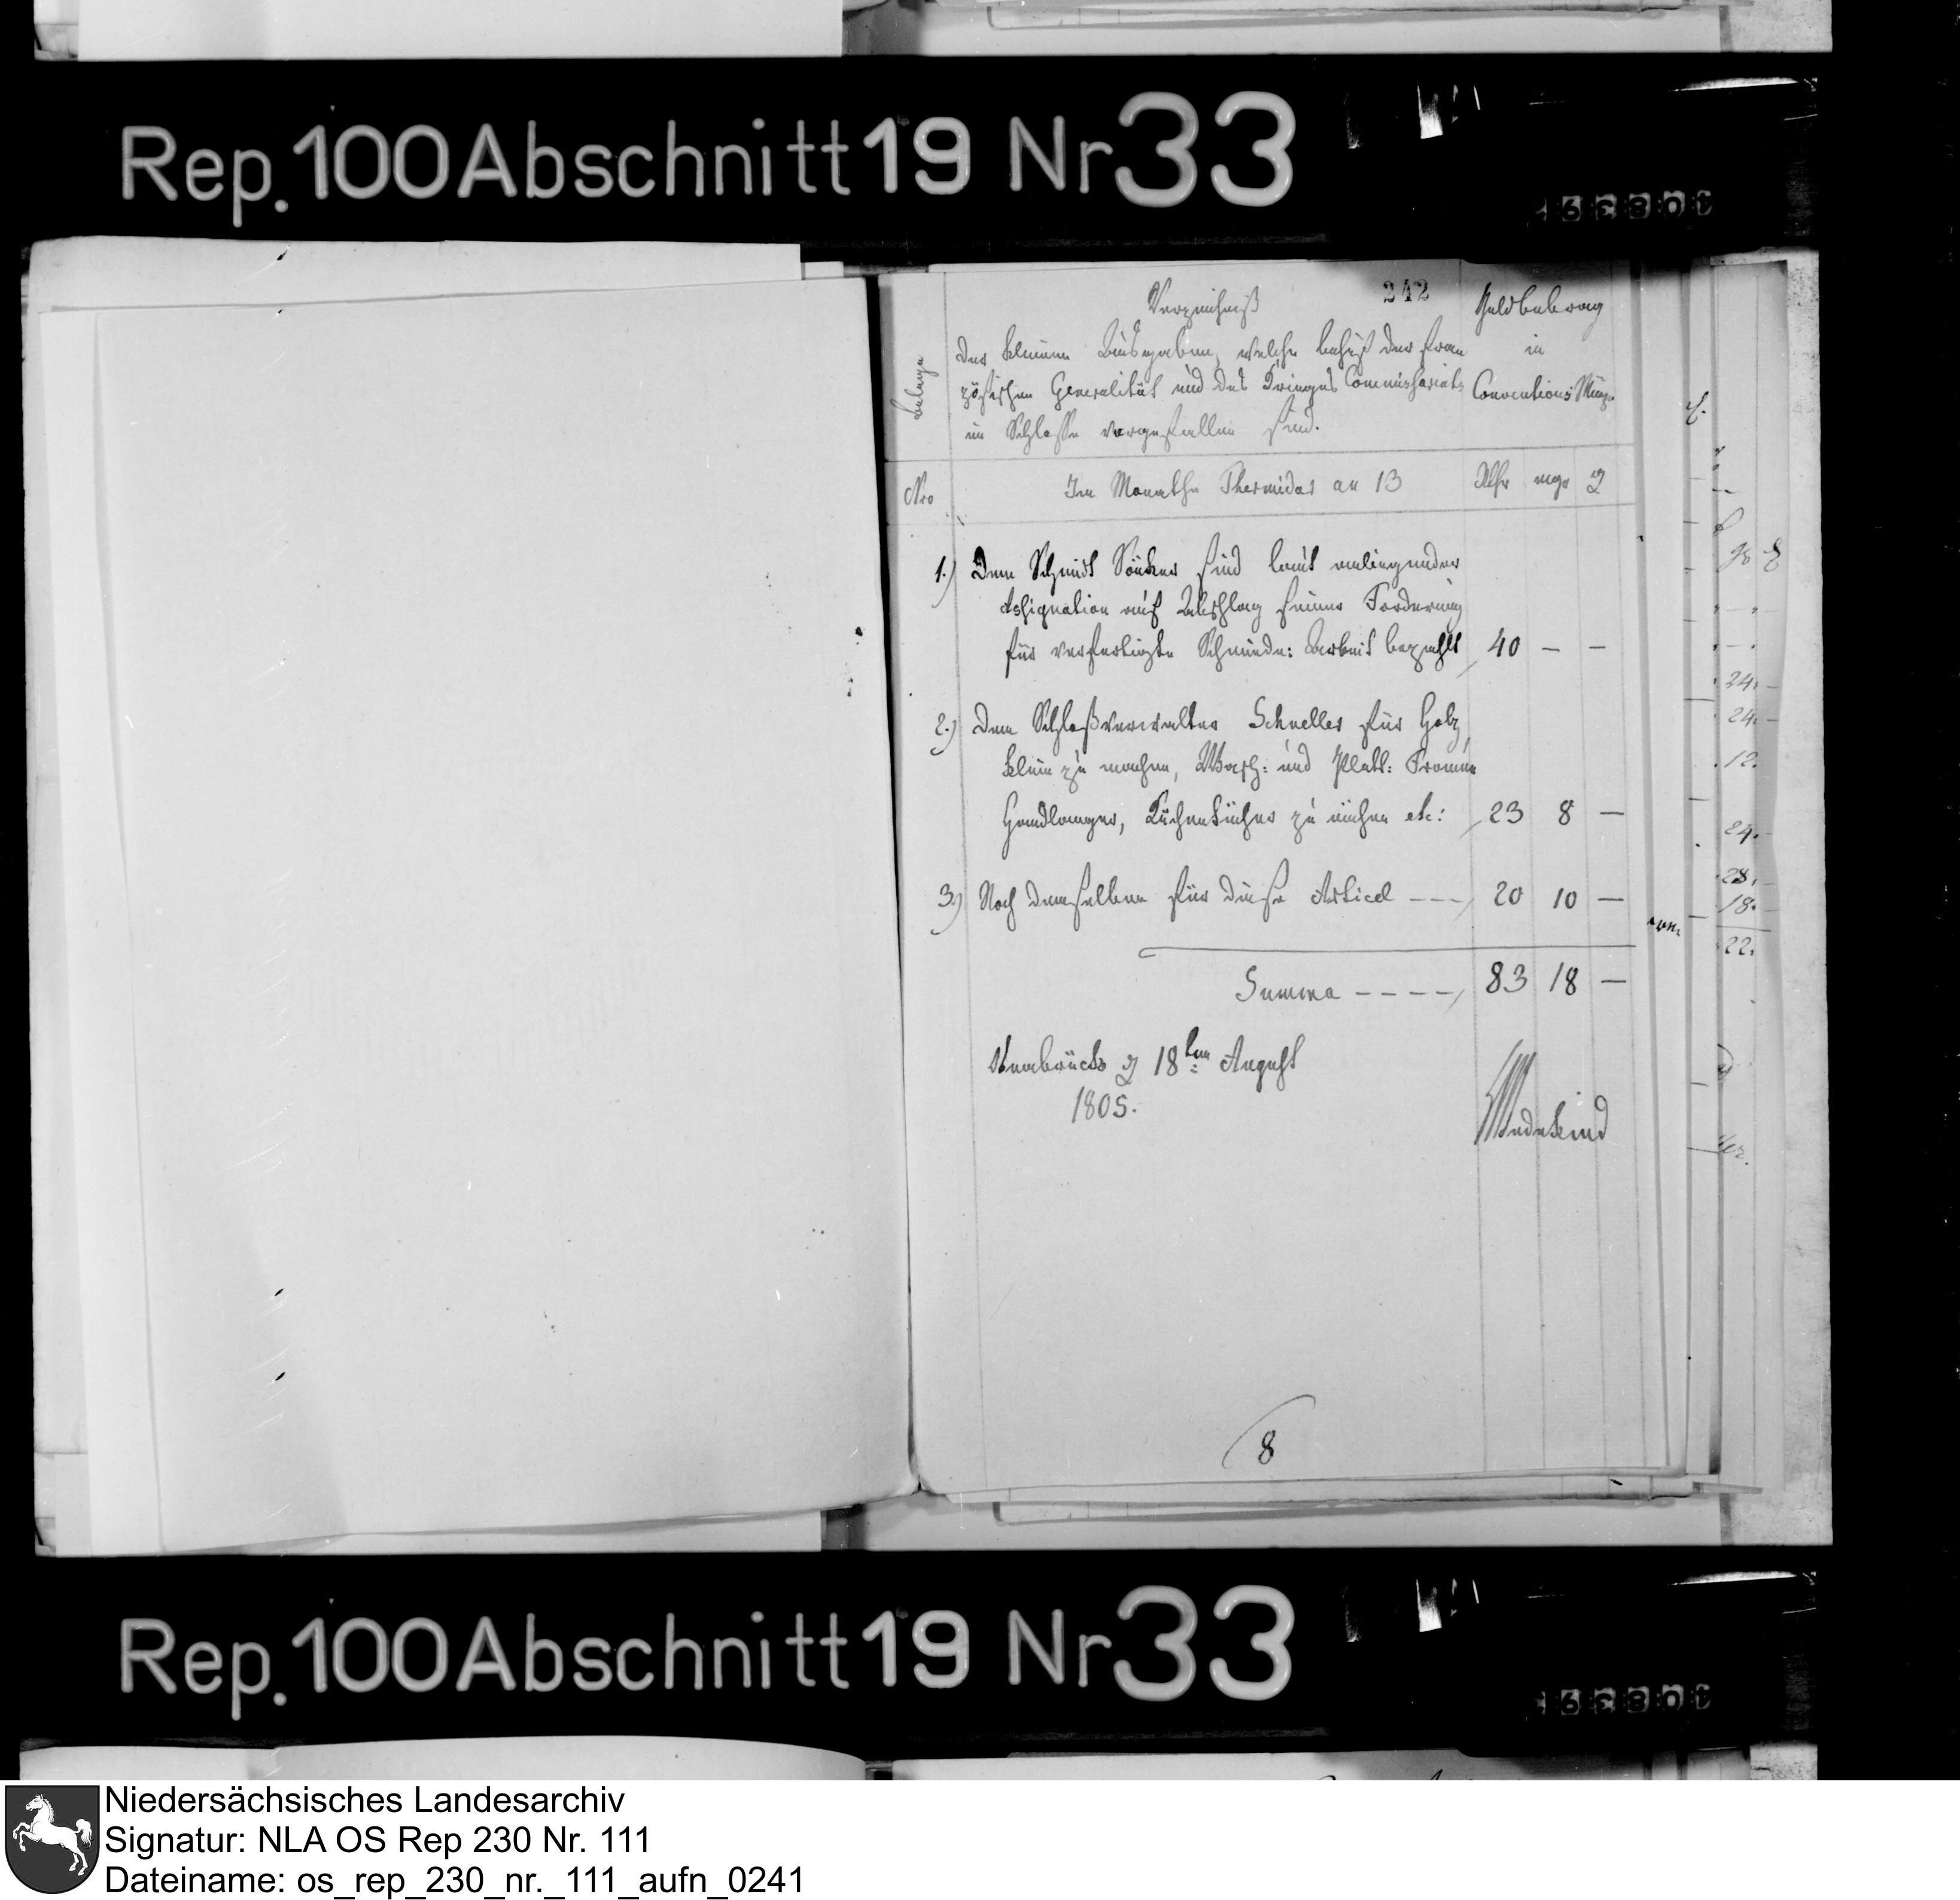 Rep. 100 Abschnitt 19 Nr 33
242
Verzeichniß
der kleinen Ausgaben, welche behuf der fran
zösischen Generalität und des Krieges Commissariats
im Schlosse vorgefallen sind.
Geldbetrag
in
Conventions Münze
Belage
Nro
Im Monathe Thermidor an 13
Rthr mgr ₰
1.) Dem Schmidt Sönker sind laut anliegender
Assignation auf Abschlag seiner Forderung
für verfertigte Schmiede: Arbeit bezahlt 40 — —
2.) Dem Schloßverwalter Schneller für Holz
klein zu machen, Wasch: und Platt: Frauen
Handlanger, Küchentücher zu nähen etc: 23 8 —
3.) Noch demselben für diese Articel - - - 20 10 —
Summa - - - - 83 18 —
Osnabrück d 18ten August
1805.
Wedekind
8
24.
24.
12.
24.
28.
18.
22.
Rep. 100 Abschnitt 19 Nr 33
Niedersächsisches Landesarchiv
Signatur: NLA OS Rep 230 Nr. 111
Dateiname: os_rep_230_nr._111_aufn_0241